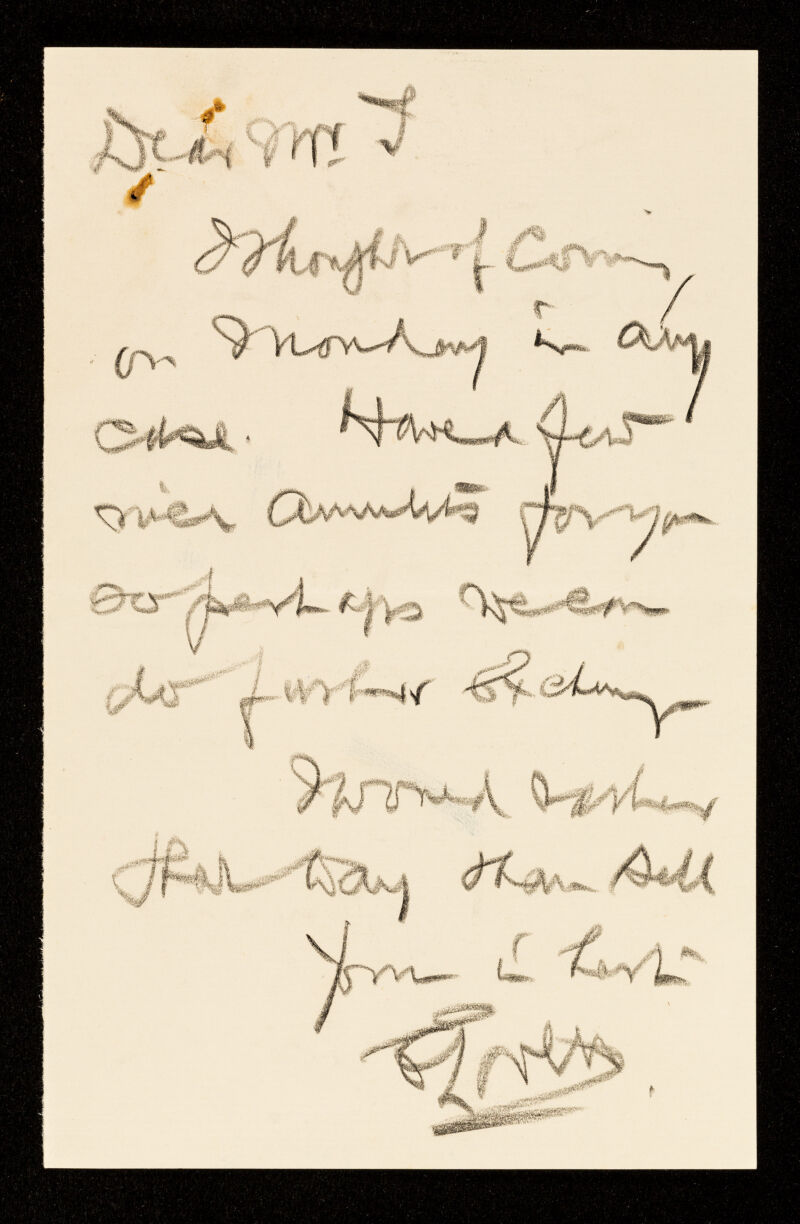 Dear Mr. T
I thought of coming
on Monday in any
case. Have a few
nice amulets for you
so perhaps we can
do further exchange
I would rather
that way than sell
Yours in haste
E Lovett